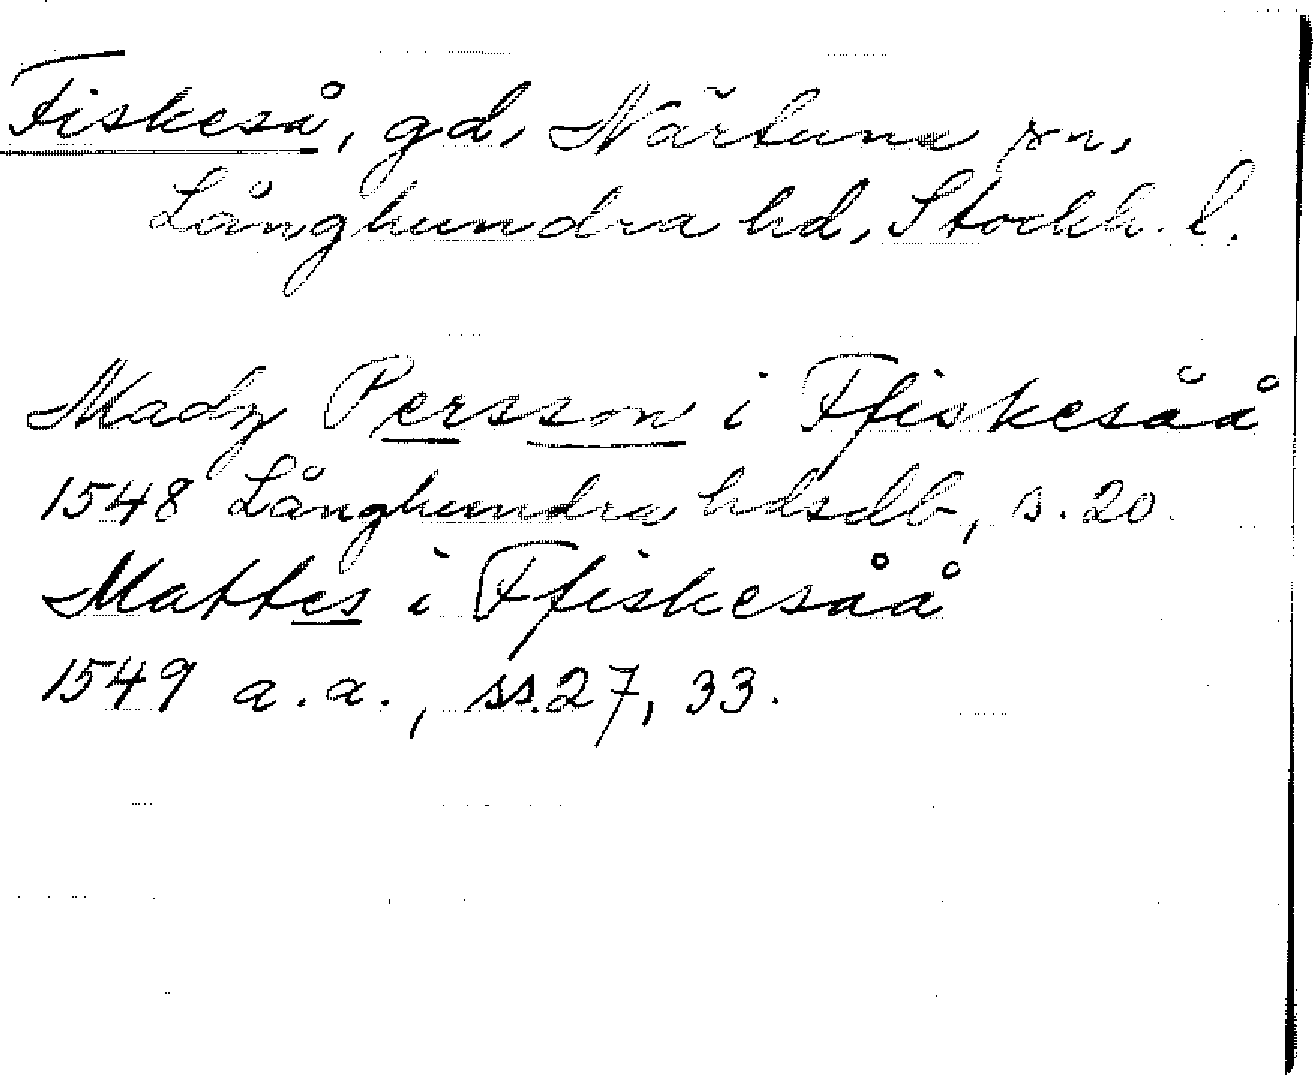 Fiskeså, gd, Närtuna sn,
Långhundra hd, Stockh. l.
Madz Persson i Ffiskesåå
1548 Långhundra hdsdb, s. 20.
Mattes i Ffiskesåå
1549 a.a., ss. 27, 33.